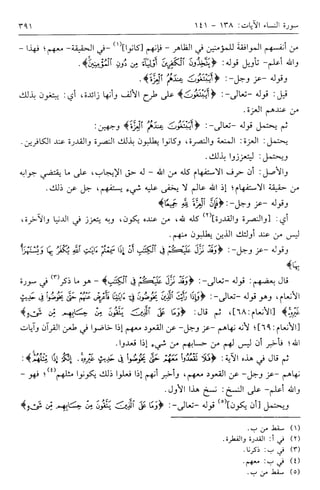 سورة النساء الآيات: ١٣٨ - ١٤١ ٣٩١
من أنفسهم الموافقة للمؤمنين في الظاهر - فإنهم [كانوا](١) - في الحقيقة - معهم؛ فهذا -
والله أعلم - تأويل قوله: ﴿يَتَّخِذُونَ الْكَافِرِينَ أَوْلِيَاءَ مِن دُونِ الْمُؤْمِنِينَ﴾.
وقوله - عز وجل -: ﴿أَيَبْتَغُونَ عِندَهُمُ الْعِزَّةَ﴾.
قيل: قوله - تعالى -: ﴿أَيَبْتَغُونَ﴾ على طرح الألف وأنها زائدة، أي: يبتغون بذلك
من عندهم العزة.
ثم يحتمل قوله - تعالى -: ﴿أَيَبْتَغُونَ عِندَهُمُ الْعِزَّةَ﴾ وجهين:
يحتمل: العزة: المنعة والنصرة، وكانوا يطلبون بذلك النصرة والقدرة عند الكافرين.
ويحتمل: ليتعززوا بذلك.
والأصل: أن حرف الاستفهام كله من الله - له حق الإيجاب، على ما يقتضي جوابه
من حقيقة الاستفهام؛ إذ الله عالم لا يخفى عليه شيء يستفهم، جل عن ذلك.
وقوله - عز وجل -: ﴿فَإِنَّ الْعِزَّةَ لِلَّهِ جَمِيعًا﴾
أي: [والنصرة والقدرة](٢) كله لله، من عنده يكون، وبه يتعزز في الدنيا والآخرة،
ليس من عند أولئك الذين يطلبون منهم.
وقوله - عز وجل -: ﴿وَقَدْ نَزَّلَ عَلَيْكُمْ فِي الْكِتَابِ أَنْ إِذَا سَمِعْتُمْ آيَاتِ اللَّهِ يُكْفَرُ بِهَا وَيُسْتَهْزَأُ
بِهَا﴾
قال بعضهم: قوله - تعالى -: ﴿وَقَدْ نَزَّلَ عَلَيْكُمْ فِي الْكِتَابِ﴾ - هو ما ذكر(٣) في سورة
الأنعام، وهو قوله - تعالى -: ﴿وَإِذَا رَأَيْتَ الَّذِينَ يَخُوضُونَ فِي آيَاتِنَا فَأَعْرِضْ عَنْهُمْ حَتَّى يَخُوضُوا فِي حَدِيثٍ
غَيْرِهِ﴾ [الأنعام: ٦٨]، ثم قال: ﴿وَمَا عَلَى الَّذِينَ يَتَّقُونَ مِنْ حِسَابِهِم مِّن شَيْءٍ﴾
[الأنعام: ٦٩]؛ لأنه نهاهم - عز وجل - عن القعود معهم إذا خاضوا في طعن القرآن وآيات
الله؛ فأخبر أن ليس لهم من حسابهم من شيء إذا قعدوا.
ثم قال في هذه الآية: ﴿فَلَا تَقْعُدُوا مَعَهُمْ حَتَّى يَخُوضُوا فِي حَدِيثٍ غَيْرِهِ إِنَّكُمْ إِذًا مِّثْلُهُمْ﴾:
نهاهم - عز وجل - عن القعود معهم، وأخبر أنهم إذا فعلوا ذلك يكونوا مثلهم(٤)؛ فهو -
والله أعلم - على النسخ: نسخ هذا الأول.
ويحتمل [أن يكون](٥) قوله - تعالى -: ﴿وَمَا عَلَى الَّذِينَ يَتَّقُونَ مِنْ حِسَابِهِم مِّن شَيْءٍ﴾
(١) سقط من ب.
(٢) في أ: القدرة والفطرة.
(٣) في ب: ذكرنا.
(٤) في ب: معهم.
(٥) سقط من ب.